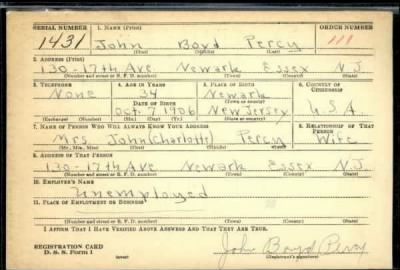 SERIAL NUMBER 1. NAME (Print) ORDER NUMBER
1431 John Boyd Percy 111
(First) (Middle) (Last)
2. ADDRESS (Print)
130-17th Ave Newark Essex N.J.
(Number and street or R. F. D. number) (Town) (County) (State)
3. TELEPHONE 4. AGE IN YEARS 5. PLACE OF BIRTH 6. COUNTRY OF CITIZENSHIP
None 34 Newark
DATE OF BIRTH (Town or county)
Oct. 7 1906 New Jersey U.S.A.
(Exchange) (Number) (Mo.) (Day) (Yr.) (State or country)
7. NAME OF PERSON WHO WILL ALWAYS KNOW YOUR ADDRESS 8. RELATIONSHIP OF THAT PERSON
Mrs John (Charlotte) Percy Wife
(Mr., Mrs., Miss) (First) (Middle) (Last)
9. ADDRESS OF THAT PERSON
130-17th Ave Newark Essex N.J.
(Number and street or R. F. D. number) (Town) (County) (State)
10. EMPLOYER'S NAME
Unemployed
11. PLACE OF EMPLOYMENT OR BUSINESS
(Number and street or R. F. D. number) (Town) (County) (State)
I AFFIRM THAT I HAVE VERIFIED ABOVE ANSWERS AND THAT THEY ARE TRUE.
REGISTRATION CARD John Boyd Percy
D. S. S. Form 1 (over) (Registrant's signature)